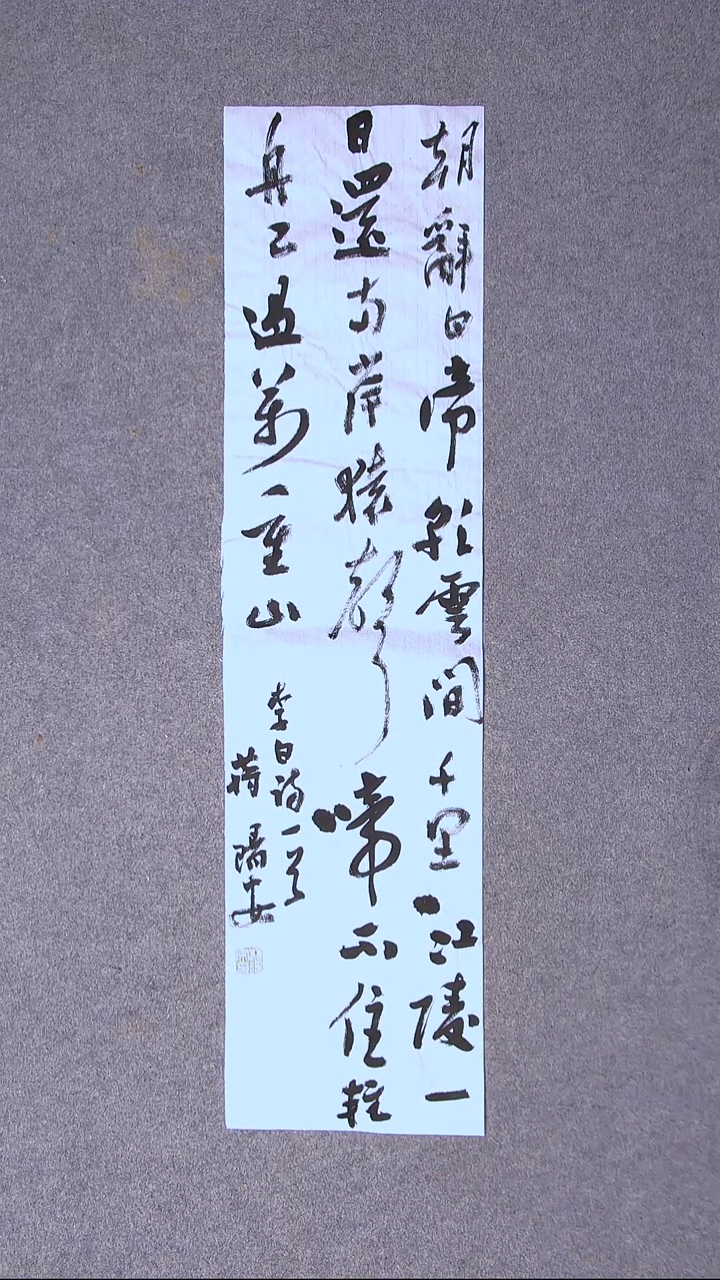 朝辭白帝彩雲間千里江陵一
日還兩岸猿聲啼不住輕
舟已過萬重山
李白詩一首
蔣陽安